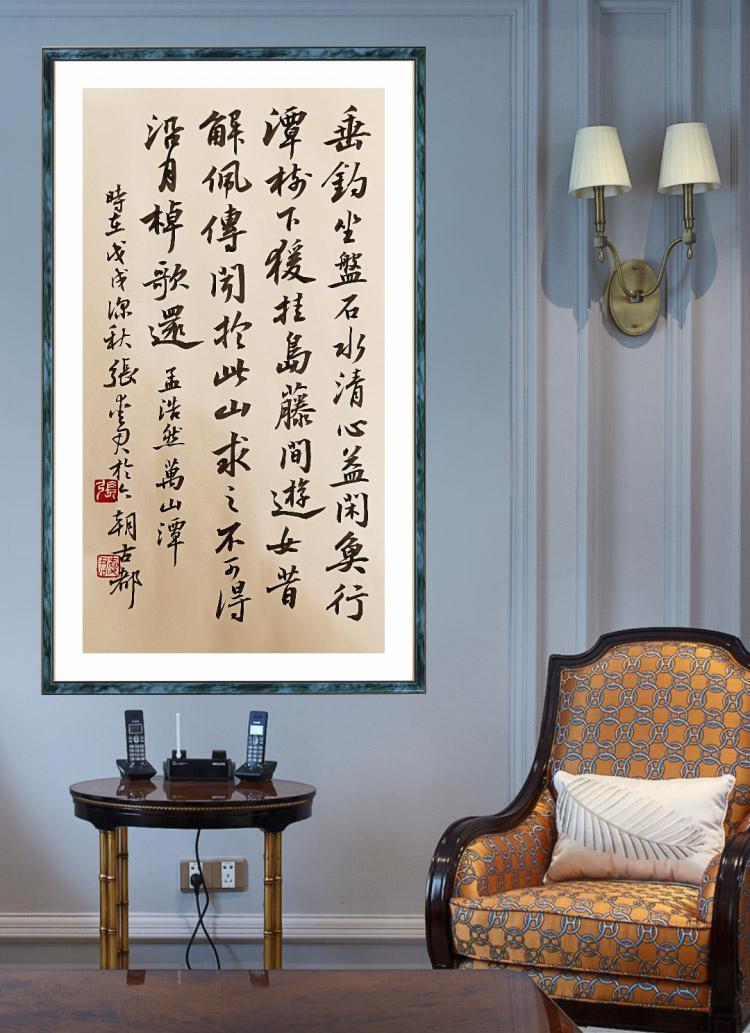 垂釣坐盤石水清心益閑魚行
潭树下猨挂島藤間遊女昔
解佩傳聞於此山求之不可得
沿月棹歌還 孟浩然 萬山潭
時在戊戌深秋張於六朝古都
張